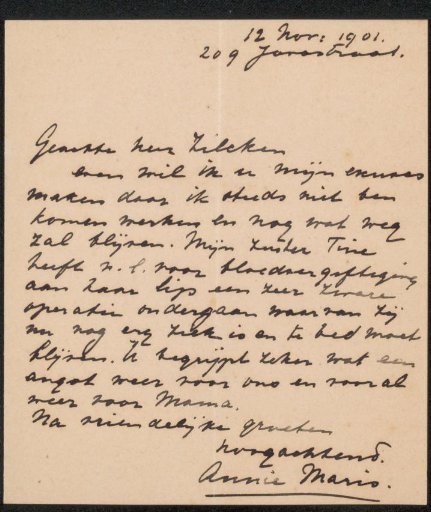 12 Nov: 1901.
209 Javastraat.
Geachte heer Zilcken
even wil ik u mijn excuses
maken daar ik steeds niet ben
komen werken en nog wat weg
zal blijven. Mijn zuster Tine
heeft n.l. voor bloedvergiftiging
aan haar lip een zeer zware
operatie ondergaan waarvan zij
nu nog erg ziek is en te bed moet
blijven. U begrijpt zeker wat een
angst weer voor ons en vooral
weer voor Mama.
Na vriendelijke groeten
hoogachtend.
Annie Maris.